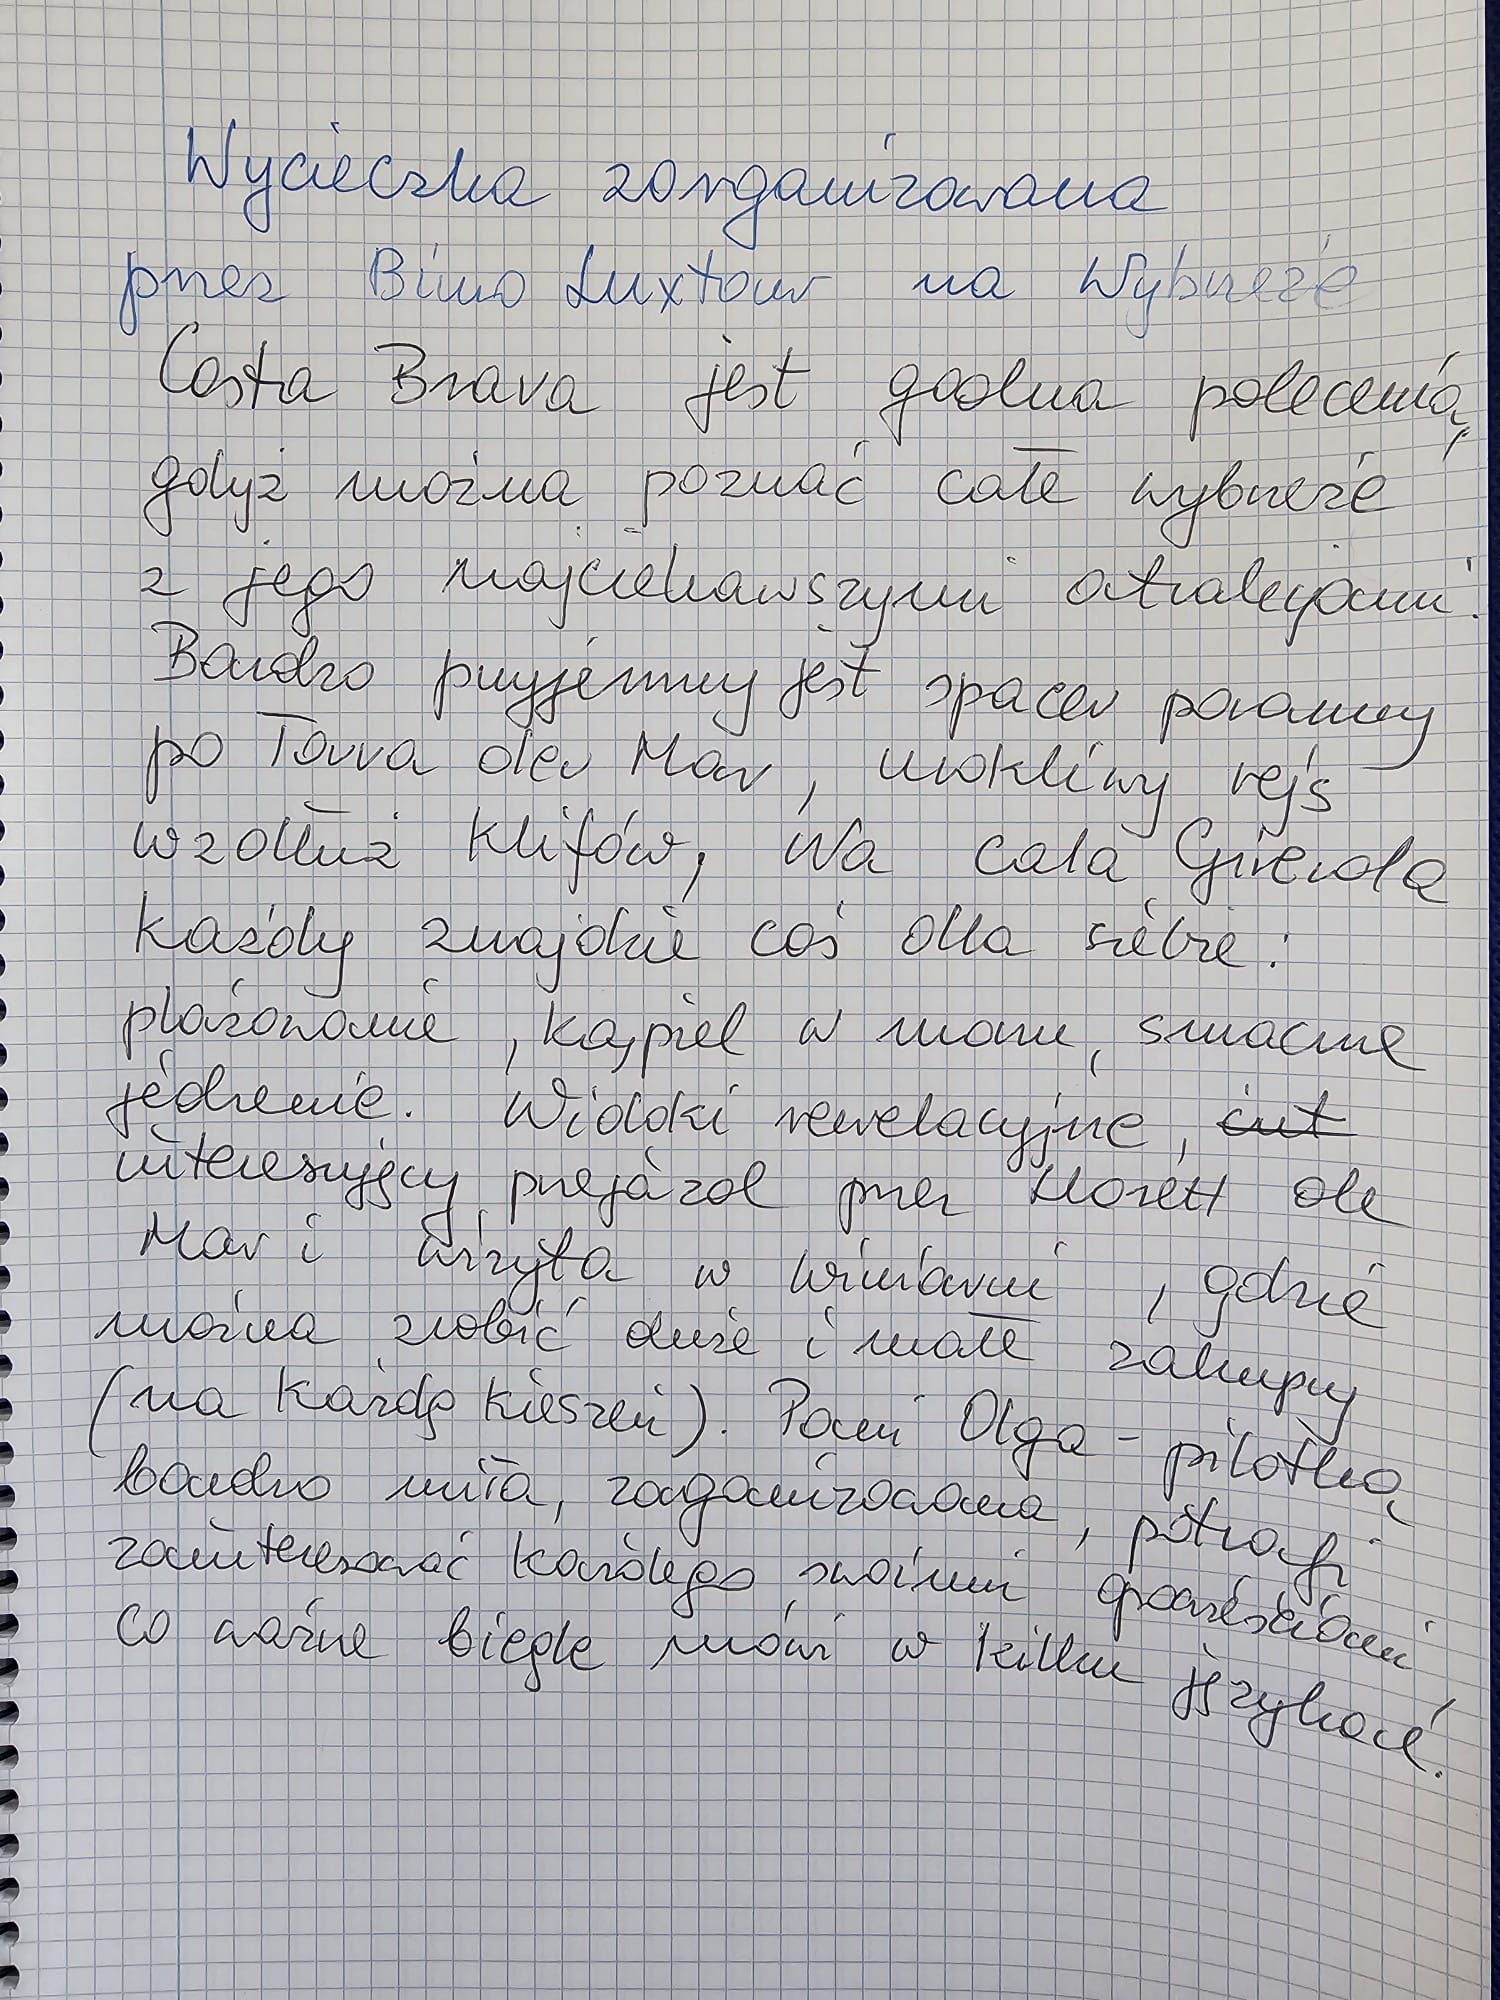 Wycieczka zorganizowana
przez Biuro Luxtour na Wybrzeże
Costa Brava jest godna polecenia,
gdyż można poznać całe wybrzeże
z jego najciekawszymi atrakcjami.
Bardzo przyjemny jest spacer poranny
po Torra der Mar, urokliwy rejs
wzdłuż klifów, Na Cala Girewola
każdy znajdzie coś dla siebie:
plażowanie, kąpiel w morzu, smaczne
jedzenie. Widoki rewelacyjne, int
interesujący przejazd przez Llorett de
Mar i wizyta w winiarni, gdzie
można zrobić duże i małe zakupy
(na każdą kieszeń). Pani Olga - pilotka,
bardzo miła, zorganizowana, potrafi
zainteresować każdego swoimi opowieściami
co ważne biegle mówi w kilku językach.